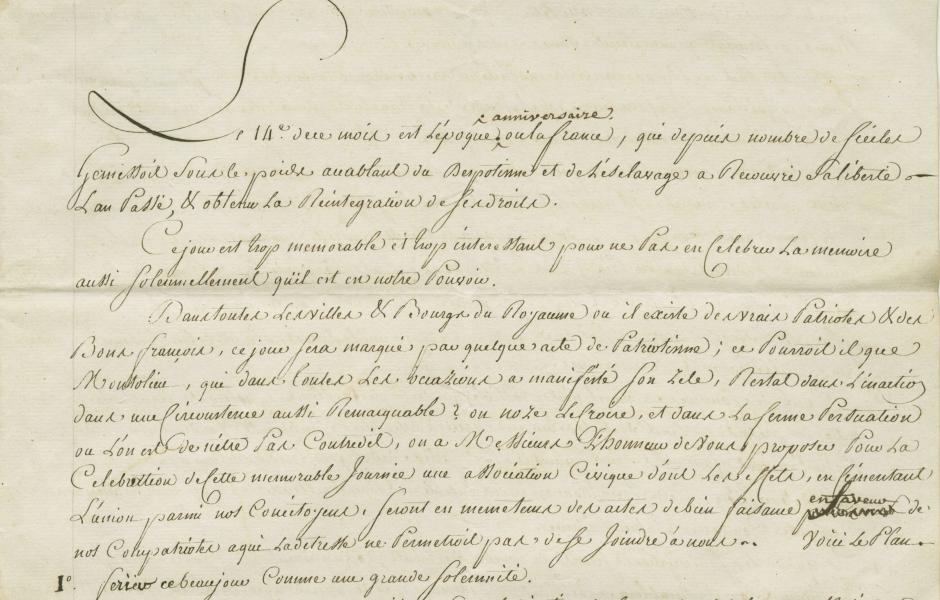 anniversaire
Le 14e dece mois est l'époque ou la france, qui depuis nombre de siecles
Gemissoit sous le poids accablant du Despotisme et de l'ésclavage a Recouvré sa liberté
L'an Passé, & obtenu La Réintegration de ses droits.
Ce jour est trop memorable et trop interessant pour ne Pas en Celebrer La memoire
aussi solemnellement qu'il est en notre Pouvoir.
Dans toutes Les villes & Bourgs du Royaume ou il existe des vrais Patriotes & des
Bons françois, ce jour sera marqué par quelque acte de Patriotisme; ce Pourroit il que
, que dans toutes Les occazions a manifésté son Zele, Restat dans L'inaction
dans une Circonstence aussi Remarquable? on noze Le Croire, et dans La ferme Persuation
ou L'on est De nétre Pas Contredit, on a Messieurs L'honneur de Vous proposer Pour La
Celebration de Cette memorable Journée une association Civique dont Les effets, en Cémentant
L'union parmi nos Concitoyens, seront en meme tems des actes de bien faisance en faveur de
nos Compatriotes a qui La detresse ne Permetroit pas de se Joindre à nous. Voici Le Plan.
1o. ce beau jour Comme une grande solemnité.